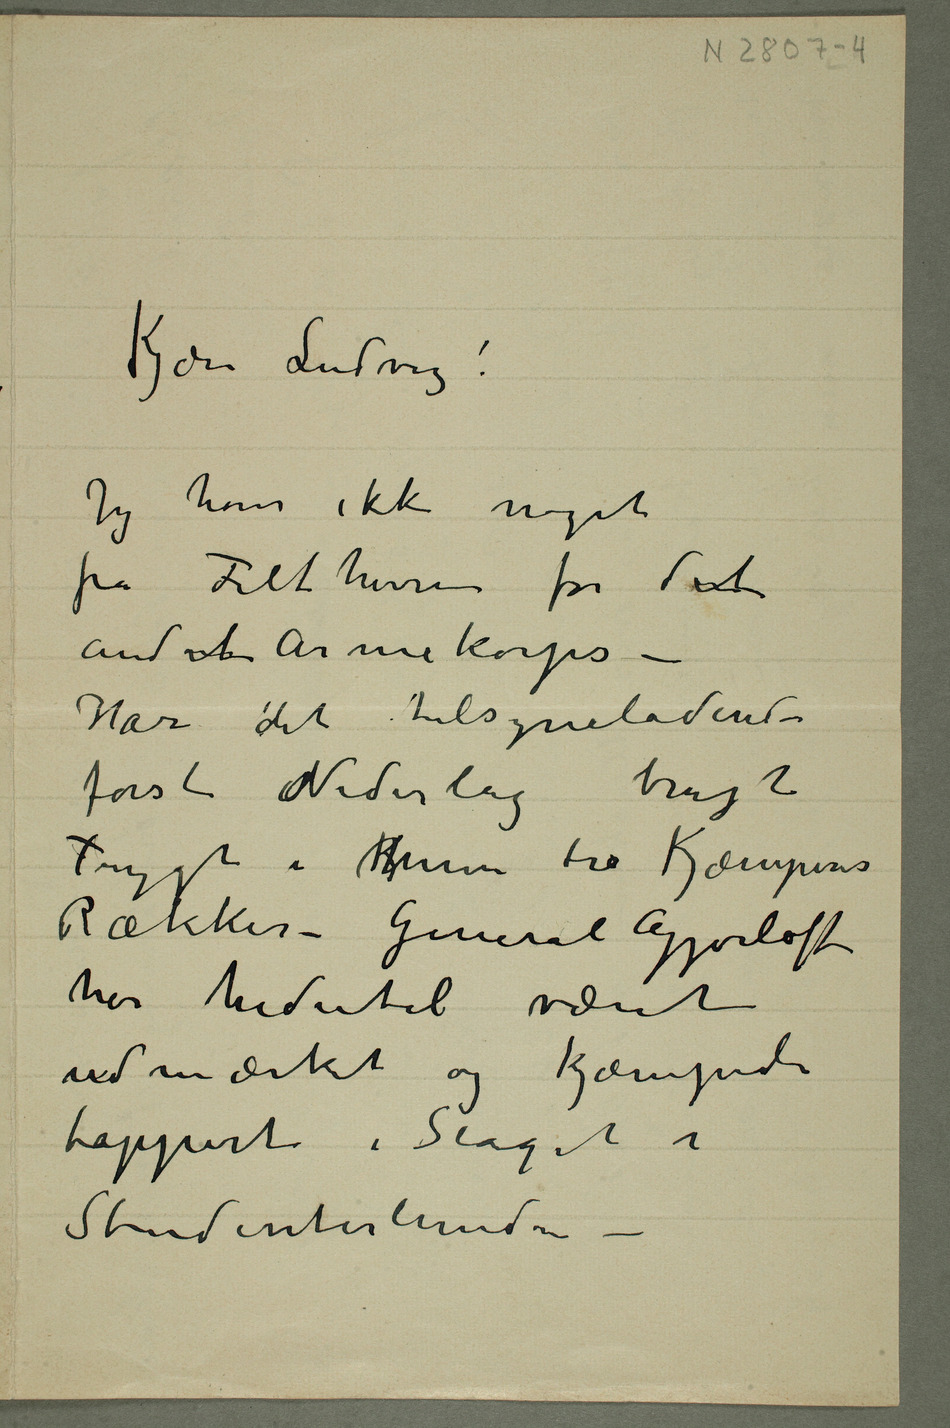 N 2807-4
Kjære Ludvig!
Jeg hører ikke noget
fra Feltherren for det
andet Armekorps –
Har det tilsyneladende
første Nederlag bragt
Frygt i tre Kjæmperes
Rækker – General Gjerløff
har hidentil været
udmærket og kjæmpede
tappert i Slaget i
Studenterlunden –